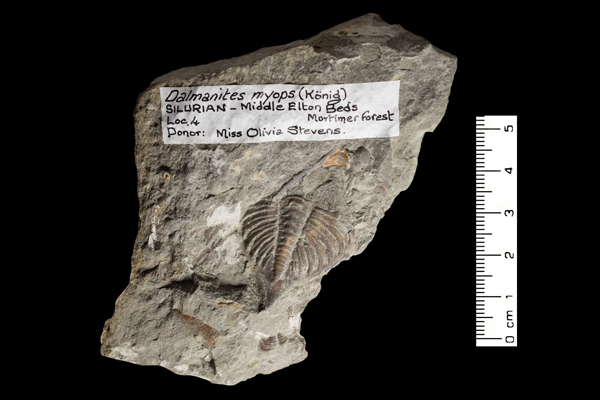 Dalmanites myops (König)
SILURIAN - Middle Elton Beds
Loc. 4 Mortimer Forest
Donor: Miss Olivia Stevens.
5
4
3
2
1
0 cm